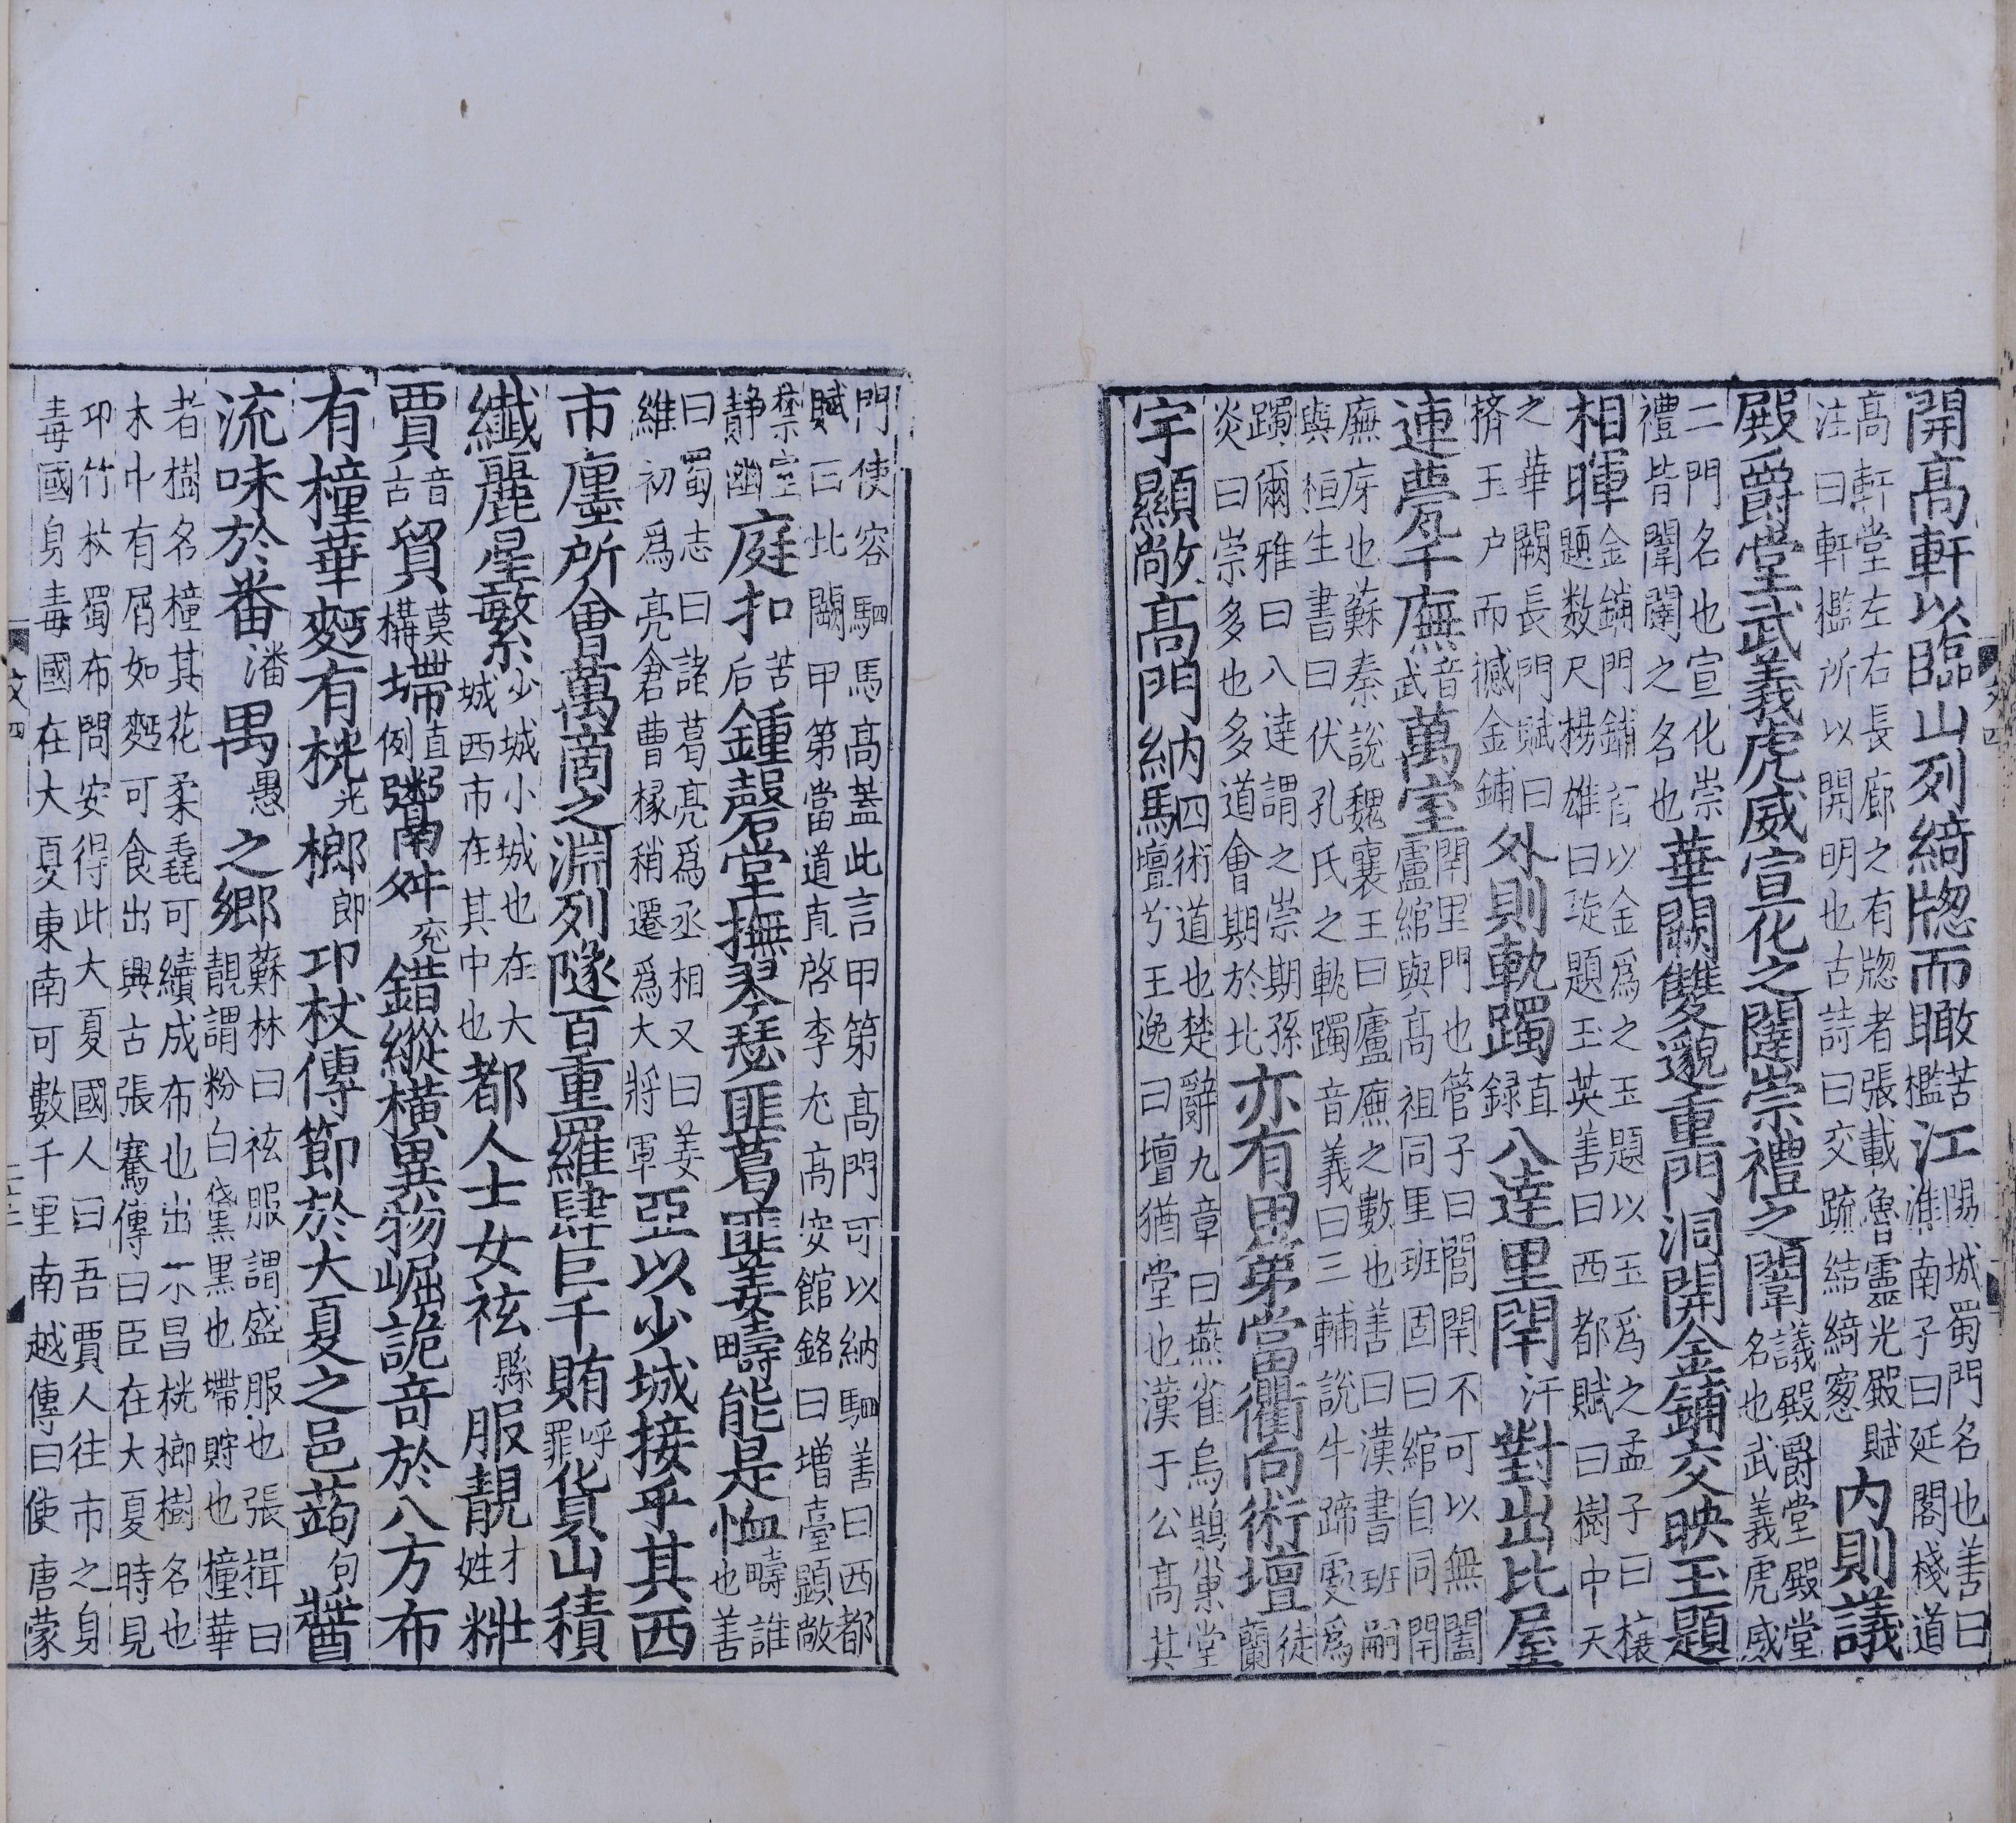 開高軒以臨山列綺牎而瞰苦檻江陽城蜀門名也善曰淮南子曰延閣棧道
高軒堂左右長廊之有牎者張載魯靈光殿賦注曰軒檻所以開明也古詩曰交疏結綺窻内則議
殿爵堂武義虎威宣化之闥崇禮之闈議殿爵堂殿堂名也武義虎威
二門名也宣化崇禮皆闈闥之名也華闕雙邈重門洞開金鋪交映玉題
相暉金鋪門鋪首以金爲之玉題以玉爲之孟子曰榱題数尺揚雄曰琁題玉英善曰西都賦曰樹中天
之華闕長門賦曰擠玉户而撼金鋪外則軌躅直録八逹里閈汗對出比屋
連甍千廡音武萬室閈里門也管子曰閭閈不可以無闔盧綰與高祖同里班固曰綰自同閈
廡序也蘇秦說魏襄王曰廬廡之數也善曰漢書班嗣與桓生書曰伏孔氏之軌躅音義曰三輔說牛蹄處爲
躅爾雅曰八逹謂之崇期孫炎曰崇多也多道會期於此亦有甲第當衢向術壇徒蘭
宇顯敞高門納駟術道也楚辭九章曰燕雀烏鵲巢堂壇兮王逸曰壇猶堂也漢于公高其
門使容駟馬高蓋此言甲第高門可以納駟善曰西都賦曰北闕甲第當道直啓李尤高安館銘曰增臺顯敞
禁室靜幽庭扣苦后鍾磬堂撫琴瑟匪葛匪姜疇能是恤疇誰也善
曰蜀志曰諸葛亮爲丞相又曰姜維初爲亮倉曹掾稍遷爲大將軍亞以少城接乎其西
市廛所會萬商之淵列隧百重羅肆巨千賄呼罪貨山積
纖麗星繁少城小城也在大城西市在其中也都人士女袨縣服靚才姓粧
賈音古貿莫構墆直例鬻舛兖錯縱橫異物崛詭奇於八方布
有橦華麪有桄光榔郎邛杖傳節於大夏之邑蒟句醬
流味於番潘禺愚之鄉蘇林曰袨服謂盛服也張揖曰靚謂粉白黛黑也墆貯也橦華
者樹名橦其花柔毳可績成布也出永昌桄榔樹名也木中有屑如麪可食出興古張騫傳曰臣在大夏時見
邛竹杖蜀布問安得此大夏國人曰吾賈人往市之身毒國身毒國在大夏東南可數千里南越傳曰使唐蒙